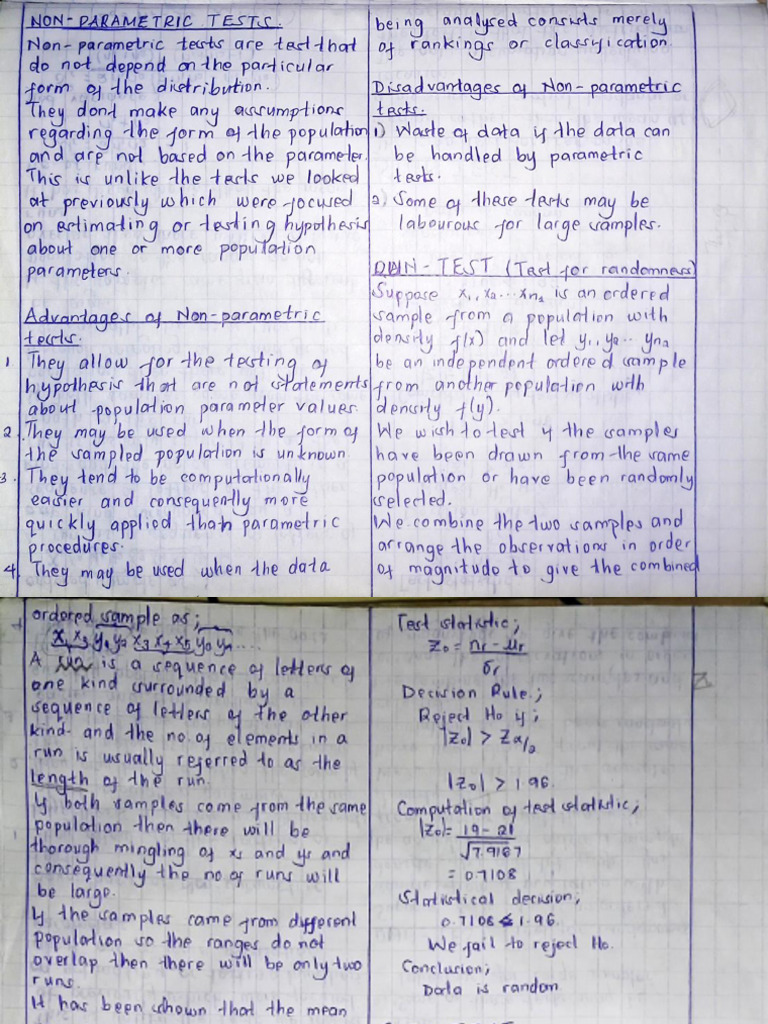 NON-PARAMETRIC TESTS.
Non-parametric tests are test that
do not depend on the particular
form of the distribution.
They dont make any assumptions
regarding the form of the population
and are not based on the parameter.
This is unlike the tests we looked
at previously which were focused
on estimating or testing hypothesis
about one or more population
parameters.
Advantages of Non-parametric
tests.
1 They allow for the testing of
hypothesis that are not statements
about population parameter values.
2. They may be used when the form of
the sampled population is unknown.
3. They tend to be computationally
easier and consequently more
quickly applied than parametric
procedures.
4. They may be used when the data
being analysed consists merely
of rankings or classification.
Disadvantages of Non-parametric
tests.
1) Waste of data if the data can
be handled by parametric
tests.
2) Some of these tests may be
labourous for large samples.
RUN-TEST (Test for randomness)
Suppose x₁, x₂...xn₁ is an ordered
sample from a population with
density f(x) and let y₁, y₂... yn₂
be an independent ordered sample
from another population with
density f(y).
We wish to test if the samples
have been drawn from the same
population or have been randomly
selected.
We combine the two samples and
arrange the observations in order
of magnitude to give the combined
ordered sample as;
y₁ y₂ x₃ x₄ x₅ y₃ y₄....
A is a sequence of letters of
one kind surrounded by a
sequence of letters of the other
kind and the no. of elements in a
run is usually referred to as the
length of the run.
If both samples come from the same
population then there will be
thorough mingling of xs and ys and
consequently the no of runs will
be large.
If the samples came from different
population so the ranges do not
overlap then there will be only two
runs.
It has been shown that the mean
Test statistic;
Z₀ = nr - μr
σr
Decision Rule.;
Reject H₀ if;
|Z₀| > Zα/₂
|Z₀| > 1.96.
Computation of test statistic;
|Z₀| = 19 - 21
√7.9167
= 0.7108
Statistical decision;
0.7108 < 1.96.
We fail to reject H₀.
Conclusion;
Data is random